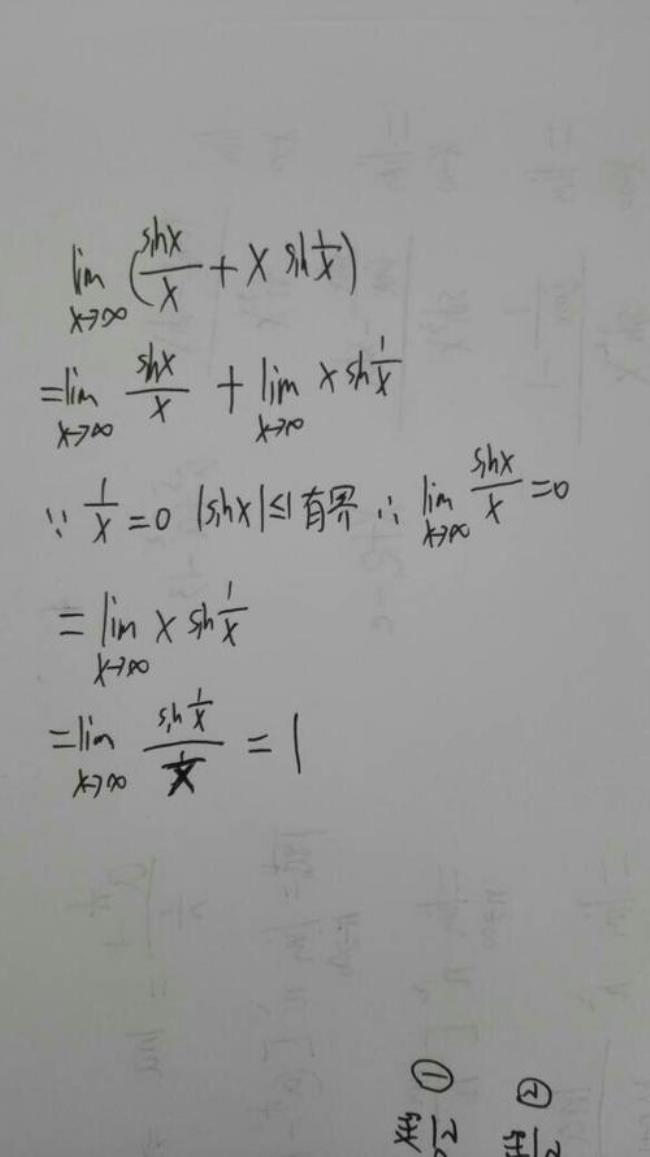 lim x→∞ (sinx/x + x sin 1/x)
= lim x→∞ sinx/x + lim x→∞ x sin 1/x
∵ 1/x = 0 |sinx| ≤ 1 有界 ∴ lim x→∞ sinx/x = 0
= lim x→∞ x sin 1/x
= lim x→∞ (sin 1/x)/(1/x) = 1
① ②